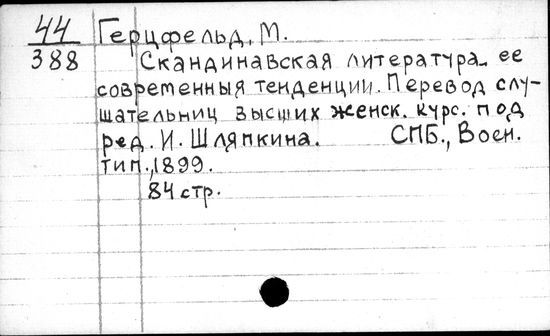 44 Герцфельд, М.
388 Скандинавская литература и ее
современныя тенденции. Перевод слу-
шательниц высших женск. курс. под
ред. И. Шляпкина. СПБ., Воен.
тип., 1899.
84 стр.